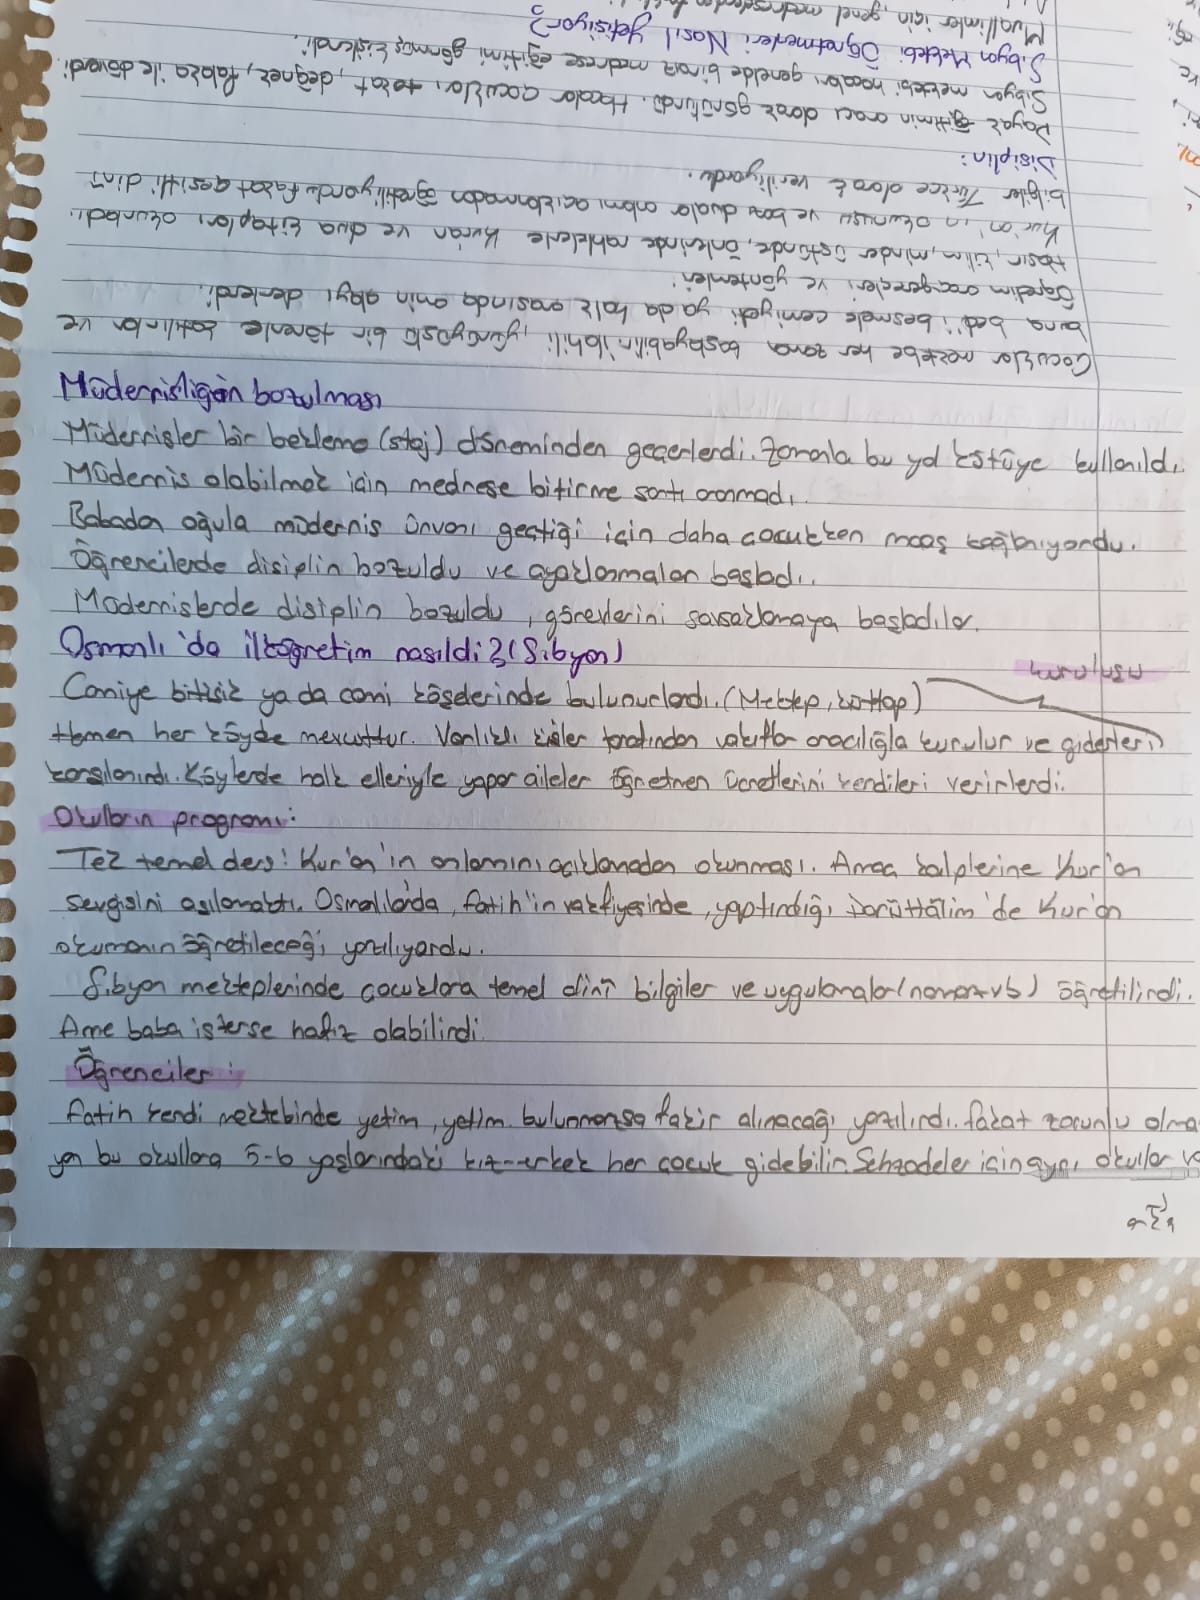 Müderrisliğin bozulması
Müderrisler bir bekleme (staj) döneminden geçerlerdi. Zamanla bu yol kötüye kullanıldı.
Müderris olabilmek için medrese bitirme şartı aranmadı.
Babadan oğula müderris ünvanı geçtiği için daha çocukken maaş bağlanıyordu.
Öğrencilerde disiplin bozuldu ve ayaklanmalar başladı.
Müderrislerde disiplin bozuldu, görevlerini savsaklamaya başladılar.
Osmanlı'da ilköğretim nasıldı? (Sıbyan)
Camiye bitişik ya da cami köşelerinde bulunurlardı. (Mektep, küttap)
Hemen her köyde mevcuttur. Varlıklı kişiler tarafından vakıflar aracılığla kurulur ve giderleri
karşılanırdı. Köylerde halk elleriyle yapar aileler öğretmen ücretlerini kendileri verirlerdi.
Okulların programı:
Tek temel ders: Kur'an'ın anlamını açıklamadan okunması. Amaç kalplerine Kur'an
sevgisini aşılamaktı. Osmanlılarda, Fatih'in vakfiyesinde, yaptırdığı Darüttâlim'de Kur'an
okumanın öğretileceği yazılıyordu.
Sıbyan mekteplerinde çocuklara temel dinî bilgiler ve uygulamalar (namaz vb) öğretilirdi.
Anne baba isterse hafız olabilirdi.
Öğrenciler:
Fatih kendi mektebinde yetim, yetim bulunmazsa fakir alınacağı yazılırdı. Fakat zorunlu olma
yan bu okullara 5-6 yaşlarındaki kız-erkek her çocuk gidebilir. Şehzadeler için ayrı okullar
Çocuklar mektebe her zaman başlayabilir. ilahili, yürüyüşlü bir törenle katılırlar ve
buna bed'i besmele cemiyeti ya da halk arasında amin alayı denilerdi.
Öğretim araç-gereçleri ve yöntemleri
Hasır, kilim, minder üstünde, önlerinde rahlelerle Kuran ve dua kitapları okunurdu.
Kur'an'ın okunuşu ve bazı dualar anlamı açıklanmadan öğretiliyordu fakat çeşitli dinî
bilgiler Türkçe olarak veriliyordu.
Disiplin:
Dayak eğitimin aracı olarak görülürdü. Hocalar çocukları tokat, değnek, falaka ile döverdi.
Sıbyan mektebi hocaları genelde biraz medrese eğitimi görmüş kişilerdi.
Sıbyan Mektebi Öğretmenleri Nasıl Yetişiyor?
Muallimler için, genel medreselerden